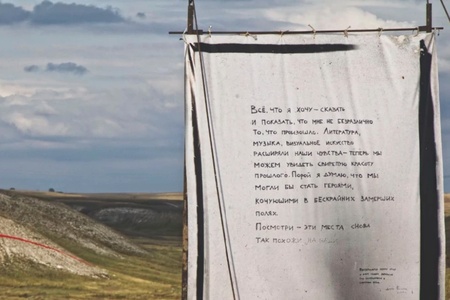 Всё, что я хочу – сказать
и показать, что мне не безразлично
то, что произошло. Литература,
музыка, визуальное искусство
расширяли наши чувства – теперь мы
можем увидеть свирепую красоту
прошлого. Порой я думаю, что мы
могли бы стать героями,
кочующими в бескрайних замерших
полях.
Посмотри – эти места снова
так похожи на